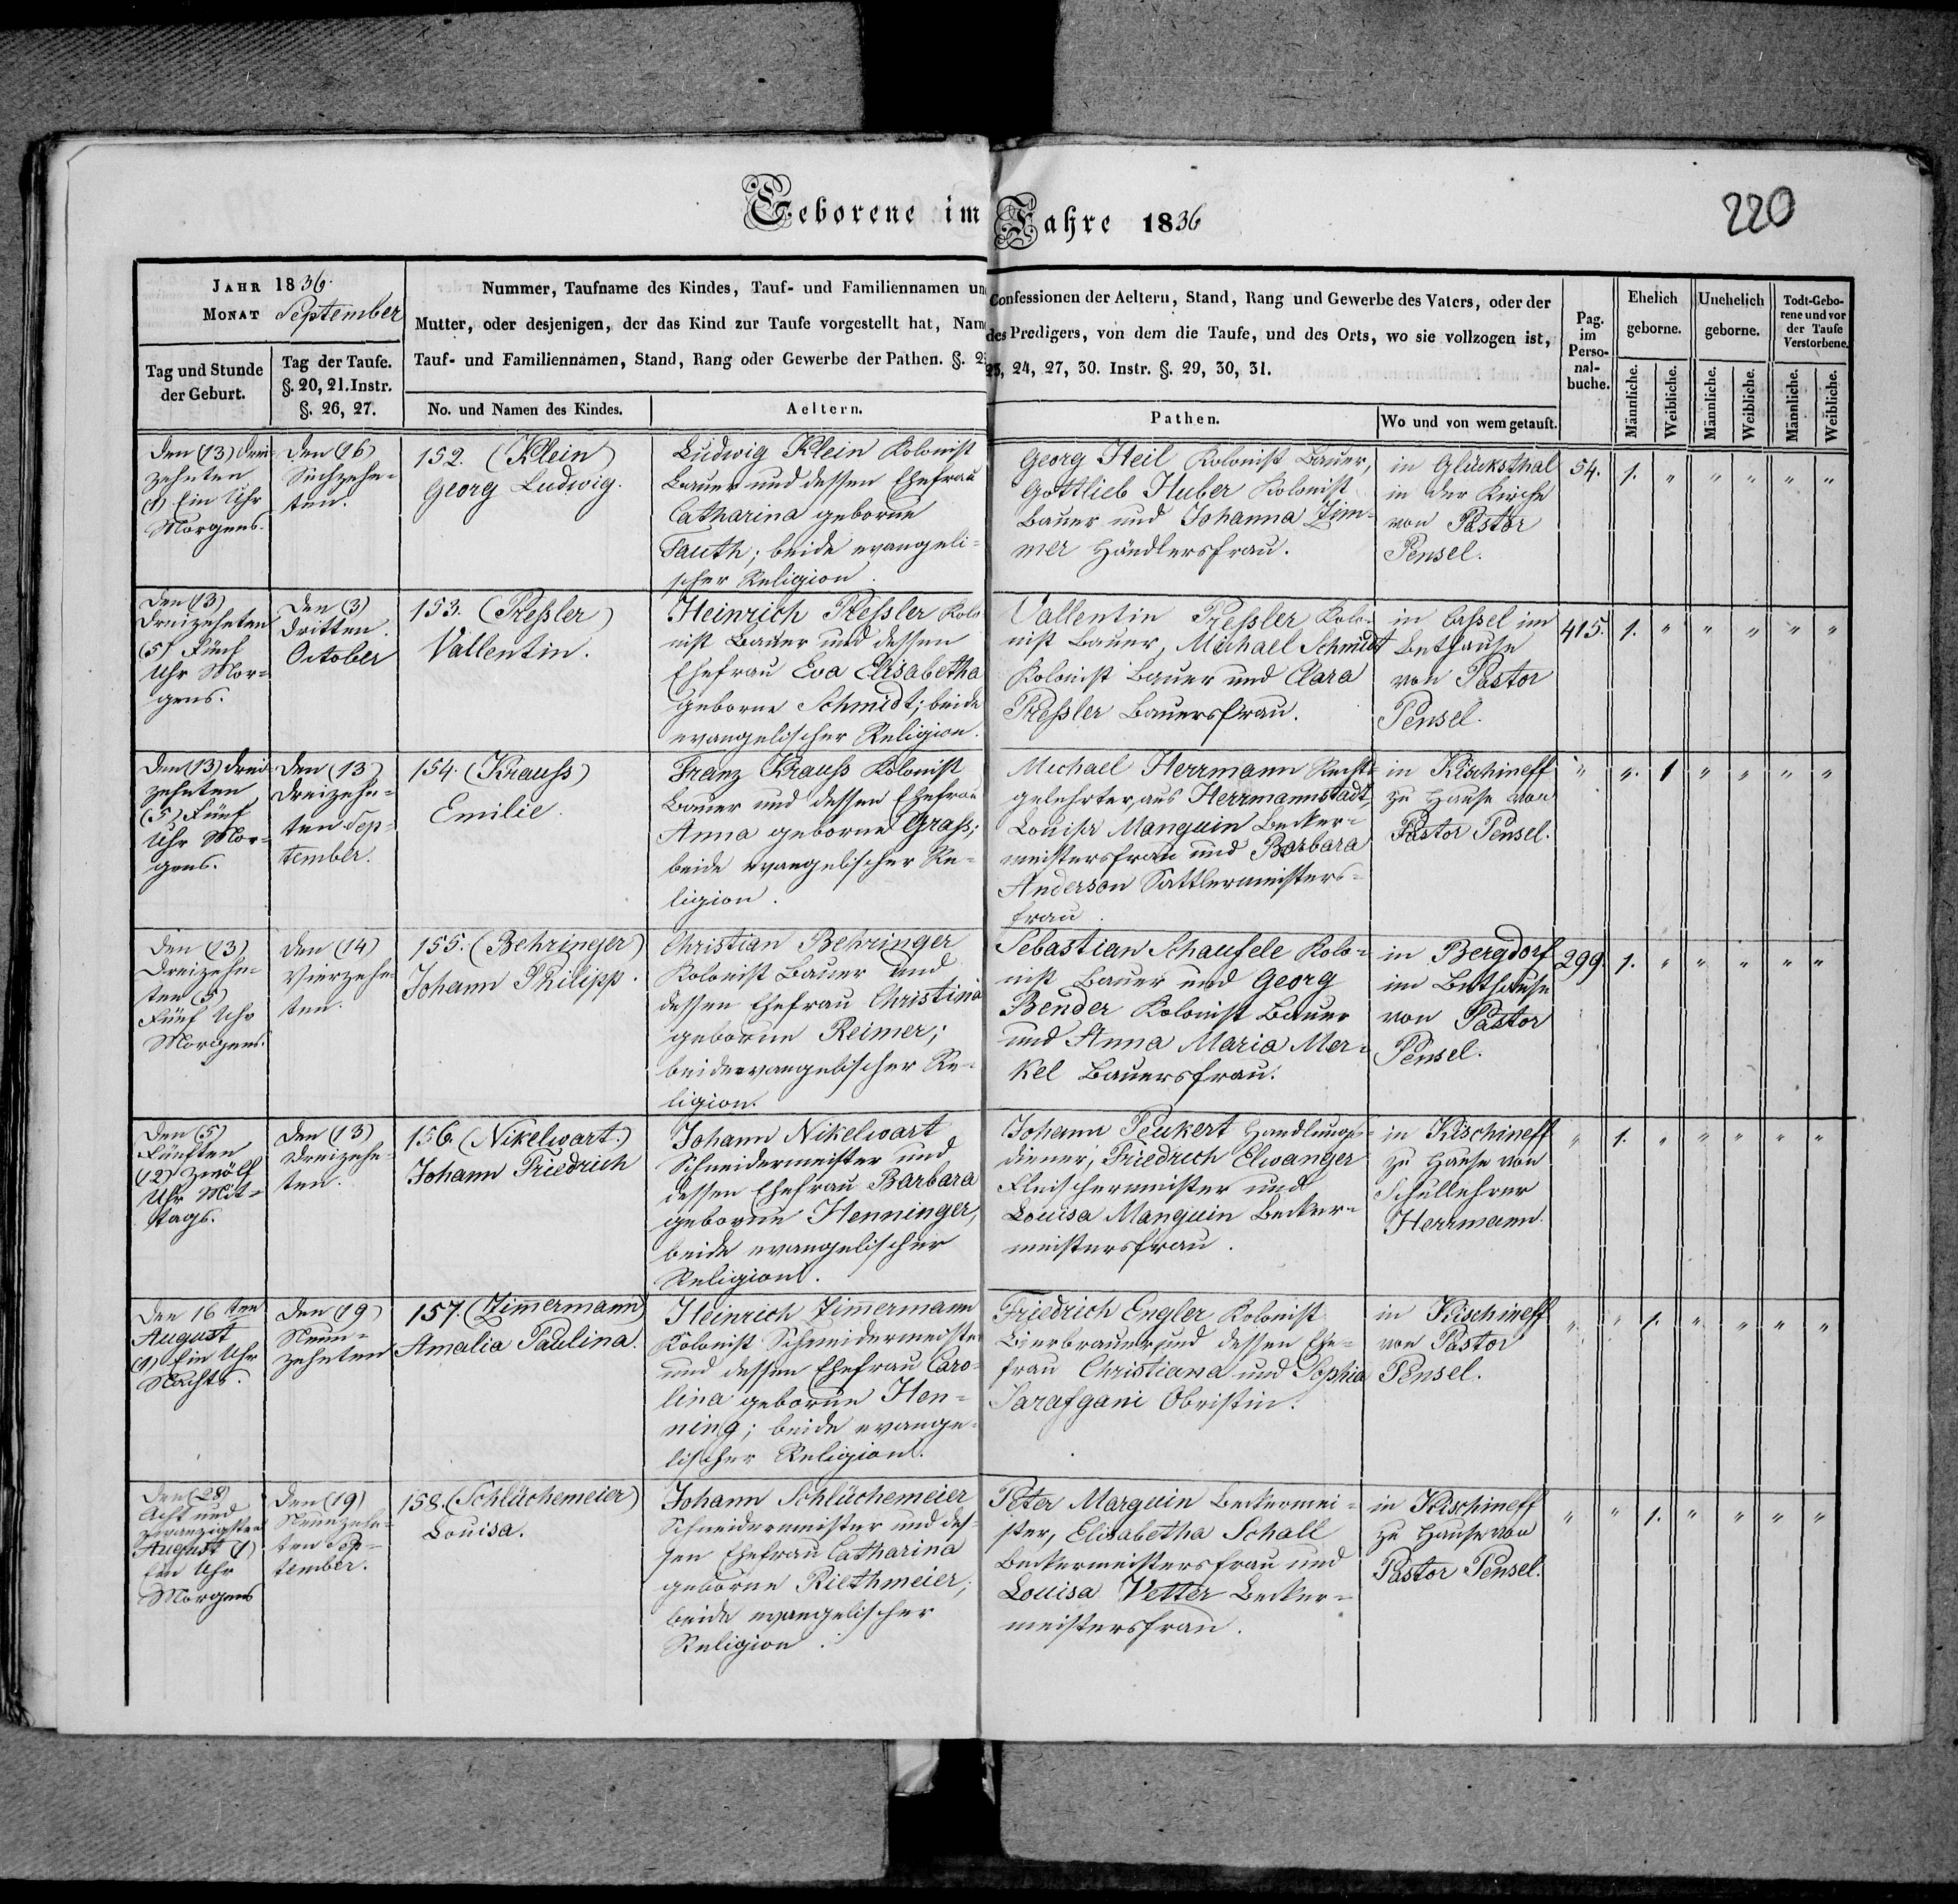 Geborene im Jahre 1836
220
JAHR 1836.
MONAT September
Nummer, Taufname des Kindes, Tauf- und Familiennamen un
Confessionen der Aeltern, Stand, Rang und Gewerbe des Vaters, oder der
Mutter, oder desjenigen, der das Kind zur Taufe vorgestellt hat, Nam
des Predigers, von dem die Taufe, und des Orts, wo sie vollzogen ist,
Tauf- und Familiennamen, Stand, Rang oder Gewerbe der Pathen. §. 2
23, 24, 27, 30. Instr. §. 29, 30, 31.
Tag und Stunde
der Geburt.
Tag der Taufe.
§. 20, 21. Instr.
§. 26, 27.
No. und Namen des Kindes.
Aeltern.
Pathen.
Wo und von wem getauft.
Pag.
im
Perso-
nal-
buche.
Ehelich
geborne.
Unehelich
geborne.
Todt-Gebo-
rene und vor
der Taufe
Verstorbene.
Männliche.
Weibliche.
Männliche.
Weibliche.
Männliche.
Weibliche.
Den (13) drei-
zehnten
(1) Ein Uhr
Morgens.
Den (16)
Sechzehn-
ten.
152. (Klein)
Georg Ludwig.
Ludwig Klein Kolonist
Bauer und dessen Ehefrau
Catharina geborne
Fauth; beide evangeli-
scher Religion.
Georg Heil Kolonist Bauer,
Gottlieb Huber Kolonist
Bauer und Johanna Zim-
mer Händlersfrau.
in Glücksthal
in der Kirche
von Pastor
Pensel.
54. 1. " " " " "
Den (13)
Dreizehnten
(5) Fünf
Uhr Mor-
gens.
Den (3)
Dritten
October
153. (Pressler)
Vallentin.
Heinrich Pressler Kolo-
nist Bauer und dessen
Ehefrau Eva Elisabetha
geborne Schmidt; beide
evangelischer Religion.
Vallentin Pressler Kolo-
nist Bauer, Michael Schmidt
Kolonist Bauer und Clara
Pressler Bauersfrau.
in Cassel im
Bethause
von Pastor
Pensel.
415. 1. " " " " "
Den (13) drei-
zehnten
(5) Fünf
Uhr Mor-
gens.
Den (13)
Dreizehn-
ten Sep-
tember.
154. (Krauss)
Emilie.
Franz Krauss Kolonist
Bauer und dessen Ehefrau
Anna geborne Grass;
beide evangelischer Re-
ligion.
Michael Herrmann Rechts-
gelehrter aus Herrmannstadt,
Louise Manguin Becker-
meistersfrau und Barbara
Anderson Sattlermeisters-
frau.
in Kischineff
zu Hause von
Pastor Pensel.
" " 1 " " " "
Den (13)
Dreizehn-
ten (5)
Fünf Uhr
Morgens.
Den (14)
Vierzehn-
ten.
155. (Behringer)
Johann Philipp.
Christian Behringer
Kolonist Bauer und
dessen Ehefrau Christina
geborne Reimer;
beide evangelischer Re-
ligion.
Sebastian Schaufele Kolo-
nist Bauer und Georg
Bender Kolonist Bauer
und Anna Maria Mer-
kel Bauersfrau.
in Bergdorf
im Bethause
von Pastor
Pensel.
299. 1. " " " " "
Den (5)
Fünften
(12) zwölf
Uhr Mit-
tags.
Den (13)
Dreizehn-
ten.
156. (Nikelwart.)
Johann Friedrich
Johann Nikelwart
Schneidermeister und
dessen Ehefrau Barbara
geborne Henninger,
beide evangelischer
Religion.
Johann Peukert Handlungs-
diener, Friedrich Elwanger
Fleischermeister und
Louisa Manguin Becker-
meistersfrau.
in Kischineff
zu Hause von
Schullehrer
Herrmann.
" 1. " " " " "
Den 16ten
August
(1) Ein Uhr
Nachts.
Den (19)
Neun-
zehnten
157. (Zimmermann)
Amalia Paulina.
Heinrich Zimmermann
Kolonist Schneidermeister
und dessen Ehefrau Caro-
lina geborne Hen-
ning; beide evange-
lischer Religion.
Friedrich Engler Kolonist
Bierbrauer und dessen Ehe-
frau Christiana und Sophia
Sarafgani Obristin.
in Kischineff
von Pastor
Pensel.
" " 1. " " " "
Den (28)
Acht und
zwanzigsten
August (1)
Ein Uhr
Morgens
Den (19)
Neunzehn-
ten Sep-
tember.
158. (Schlüchemeier)
Louisa.
Johann Schlüchemeier
Schneidermeister und des-
sen Ehefrau Catharina
geborne Riethmeier;
beide evangelischer
Religion.
Peter Marguin Beckermei-
ster, Elisabetha Schall
Beckermeistersfrau und
Louisa Vetter Becker-
meistersfrau.
in Kischineff
zu Hause von
Pastor Pensel.
" " 1. " " " "